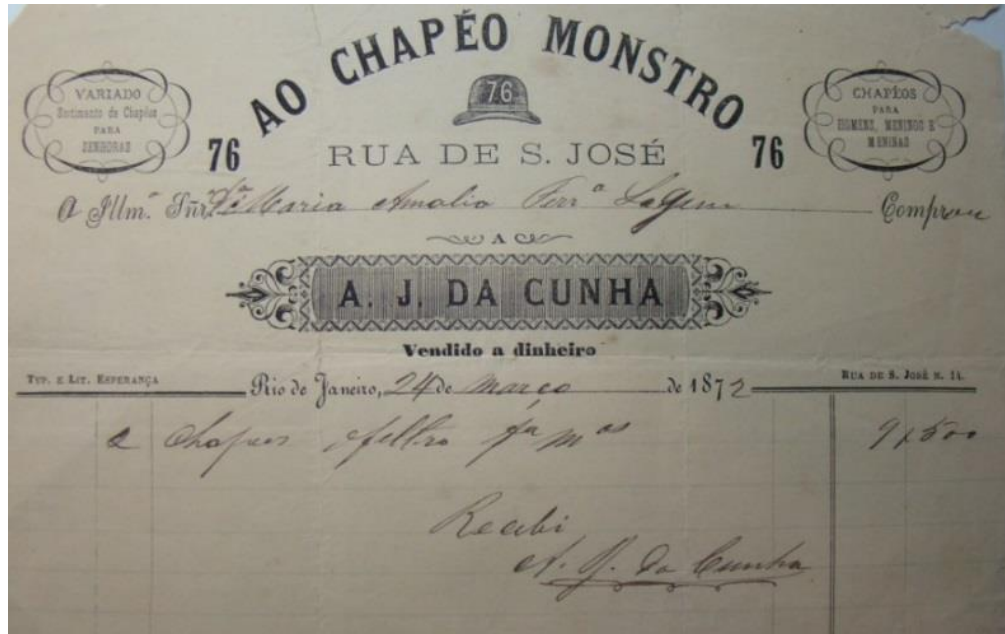 AO CHAPÉO MONSTRO
VARIADO
Sortimento de Chapéos
PARA
SENHORAS
76
76
RUA DE S. JOSÉ
76
CHAPÉOS
PARA
HOMENS, MENINOS E
MENINAS
A Illm.ª Snr.ª Maria Amalia Ferr.ª Comprou
A
A. J. DA CUNHA
Vendido a dinheiro
TYP. E LIT. ESPERANÇA
Rio de Janeiro, 24 de Março de 1872
RUA DE S. JOSÉ N. 14.
2 Chapeos feltro pª m.ºs 9$500
Recebi
A. J. Da Cunha